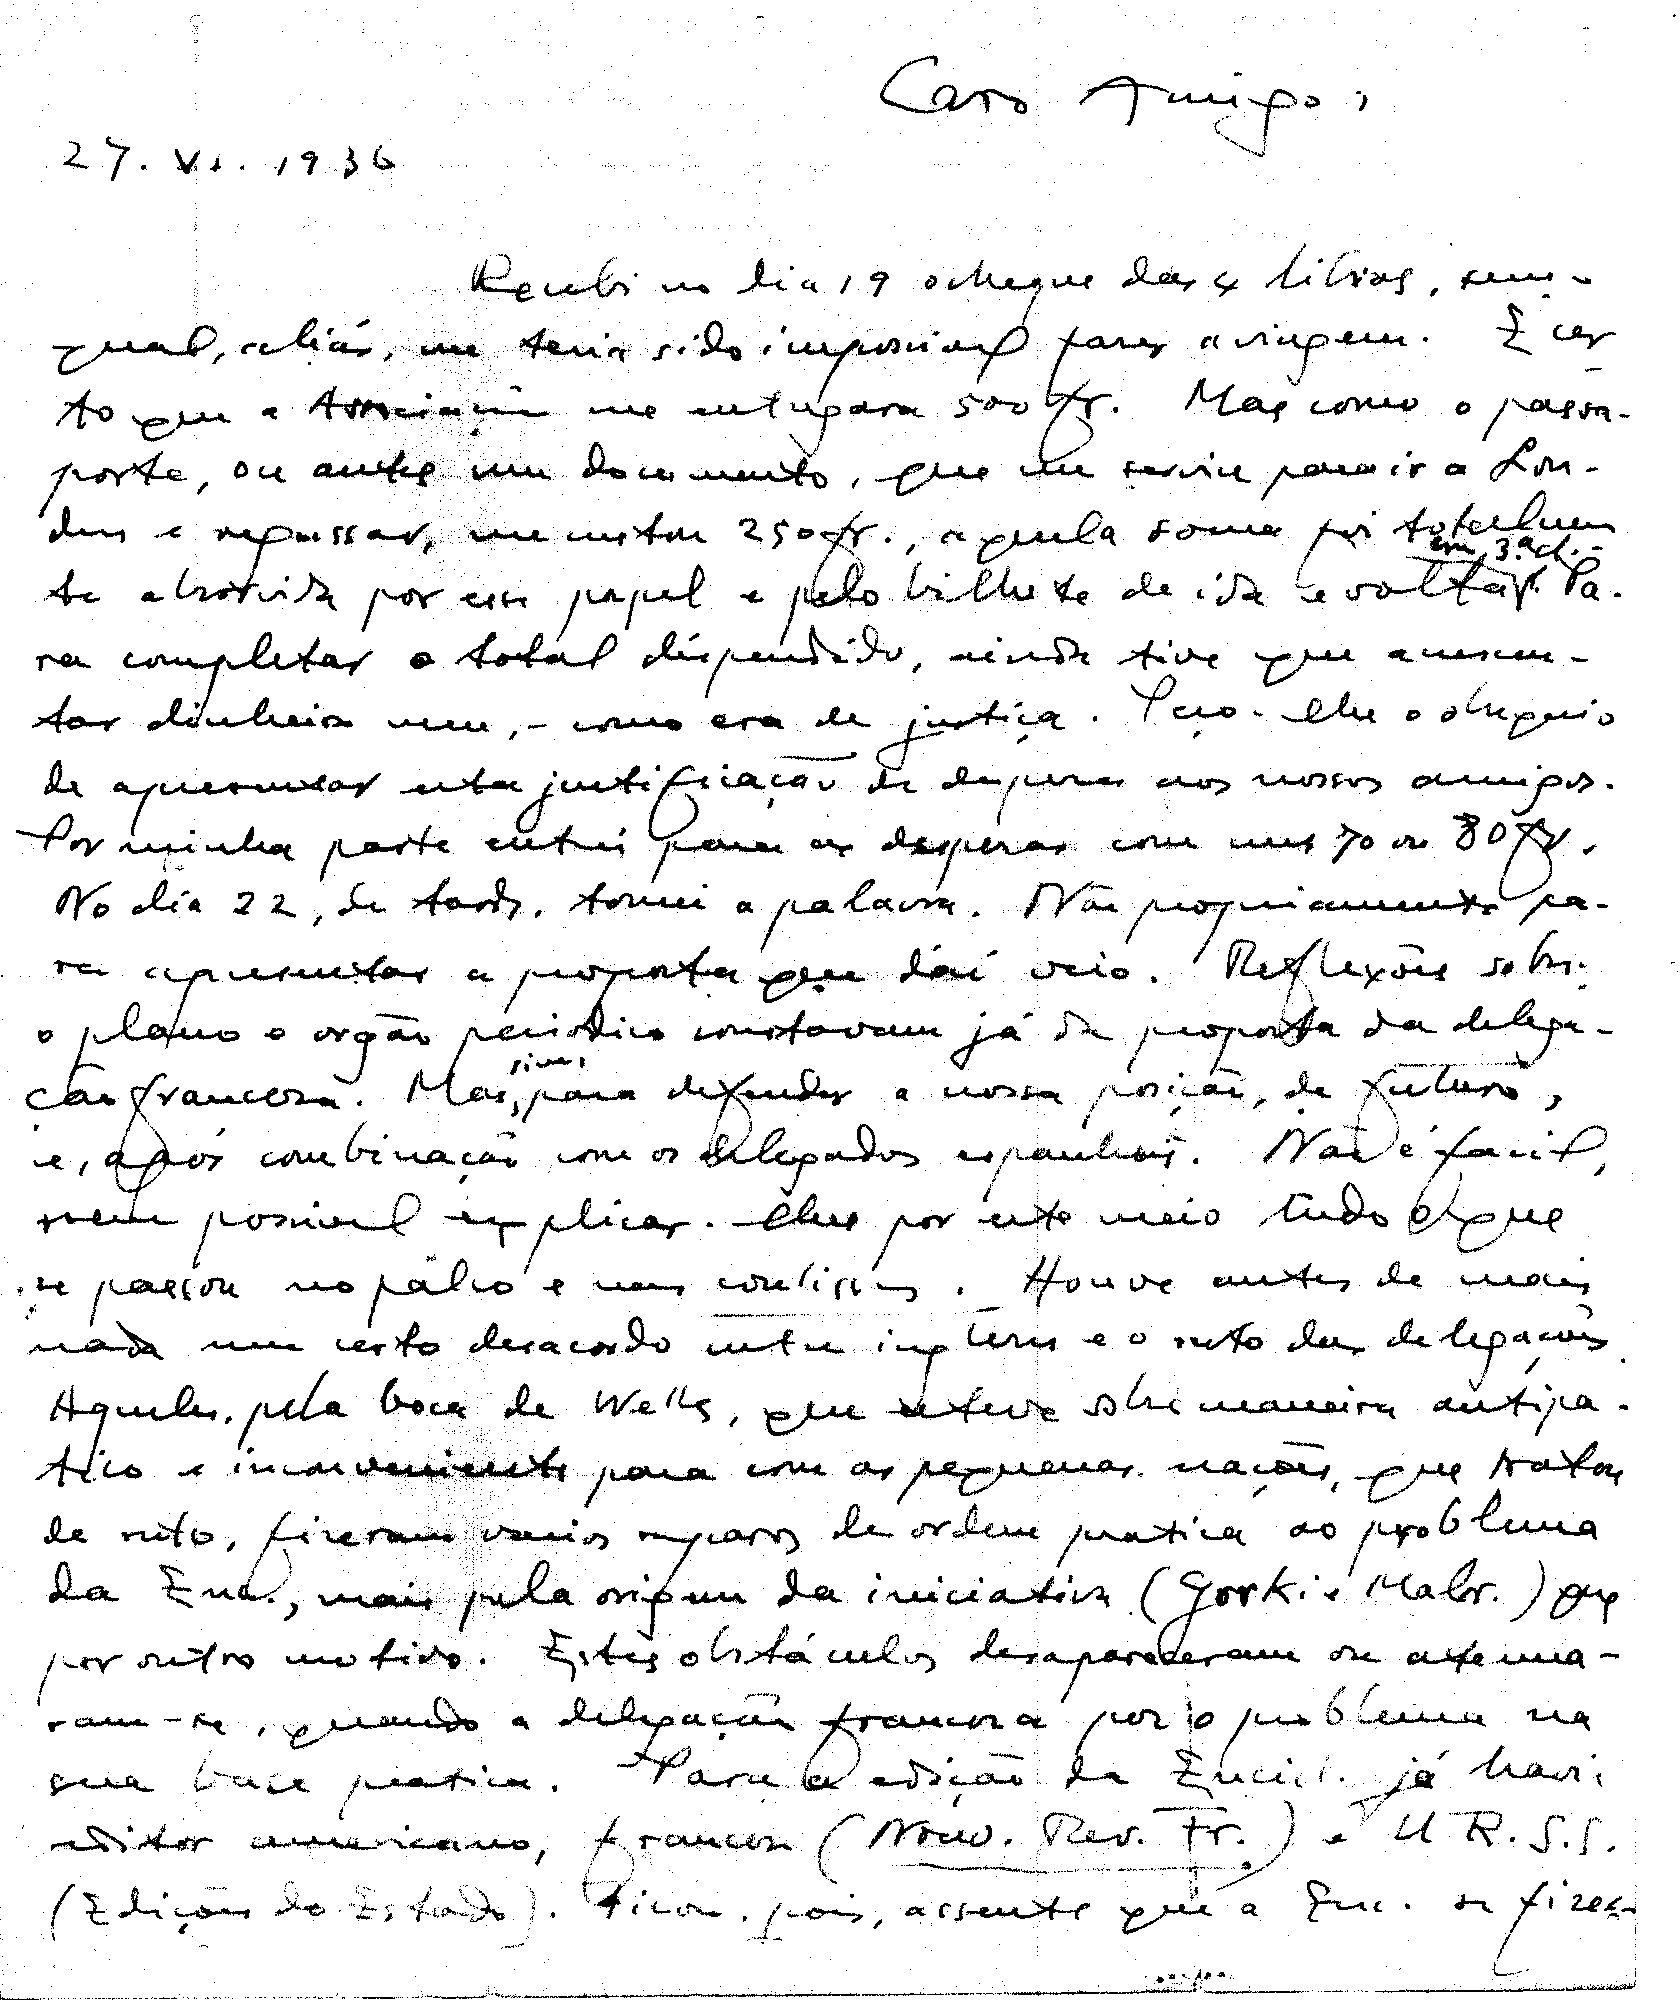 Caro Amigo:
27. VI. 1936
Recebi no dia 19 o cheque das 4 libras, sem o
qual, aliás, me teria sido impossivel fazer a viagem. É cer
to que a Associação me entregara 500 fr. Mas como o passa-
porte, ou antes um documento, que me servia para ir a Lon-
dres e regressar, me custou 250 fr., aquela soma foi totalmen
em 3.ª cl.
te absorvida por esse papel e pelo bilhete de ida e volta. Pa-
ra completar o total dispendido, ainda tive que acrescen-
tar dinheiro meu, - como era de justiça. Peço-lhe o obsequio
de apresentar esta justificação de despesas aos nossos amigos.
Por minha parte entrei para as despesas com uns 70 ou 80 fr.
No dia 22, de tarde, tomei a palavra. Não propriamente pa-
ra apresentar a proposta que daí veio. Reflexões sobre
o plano e orgão periodico constavam já da proposta da delega-
sim,
ção francesa. Mas, para defender a nossa posição, de futuro,
e, após combinação com os delegados espanhois. Não é facil,
nem possivel explicar-lhes por este meio tudo o que
se passou no palco e nos coulisses. Houve antes de mais
nada um certo desacordo entre inglêses e o resto das delegações.
Aqueles, pela boca de Wells, que esteve sobremaneira antipa-
tico e inconveniente para com as pequenas nações, que tratou
de resto, fizeram varios reparos de ordem pratica ao problema
da Enc., mais pela origem da iniciativa (Gorki e Malr.) que
por outro motivo. Estes obstáculos desapareceram ou atenua-
ram-se, quando a delegação francesa pôs o problema na
sua base pratica. Para a edição da Encicl. já havia
editor americano, francês (Nouv. Rev. Fr.) e U R.S.S.
(Edições do Estado). Ficou, pois, assente que a Enc. se fizes-